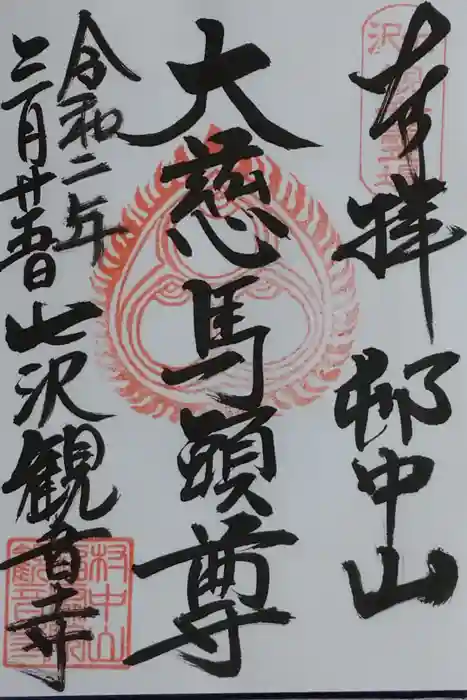 奉拝 邨中山
大慈馬頭尊
令和二年
三月廿五日 七沢観音寺
村中山
観音寺